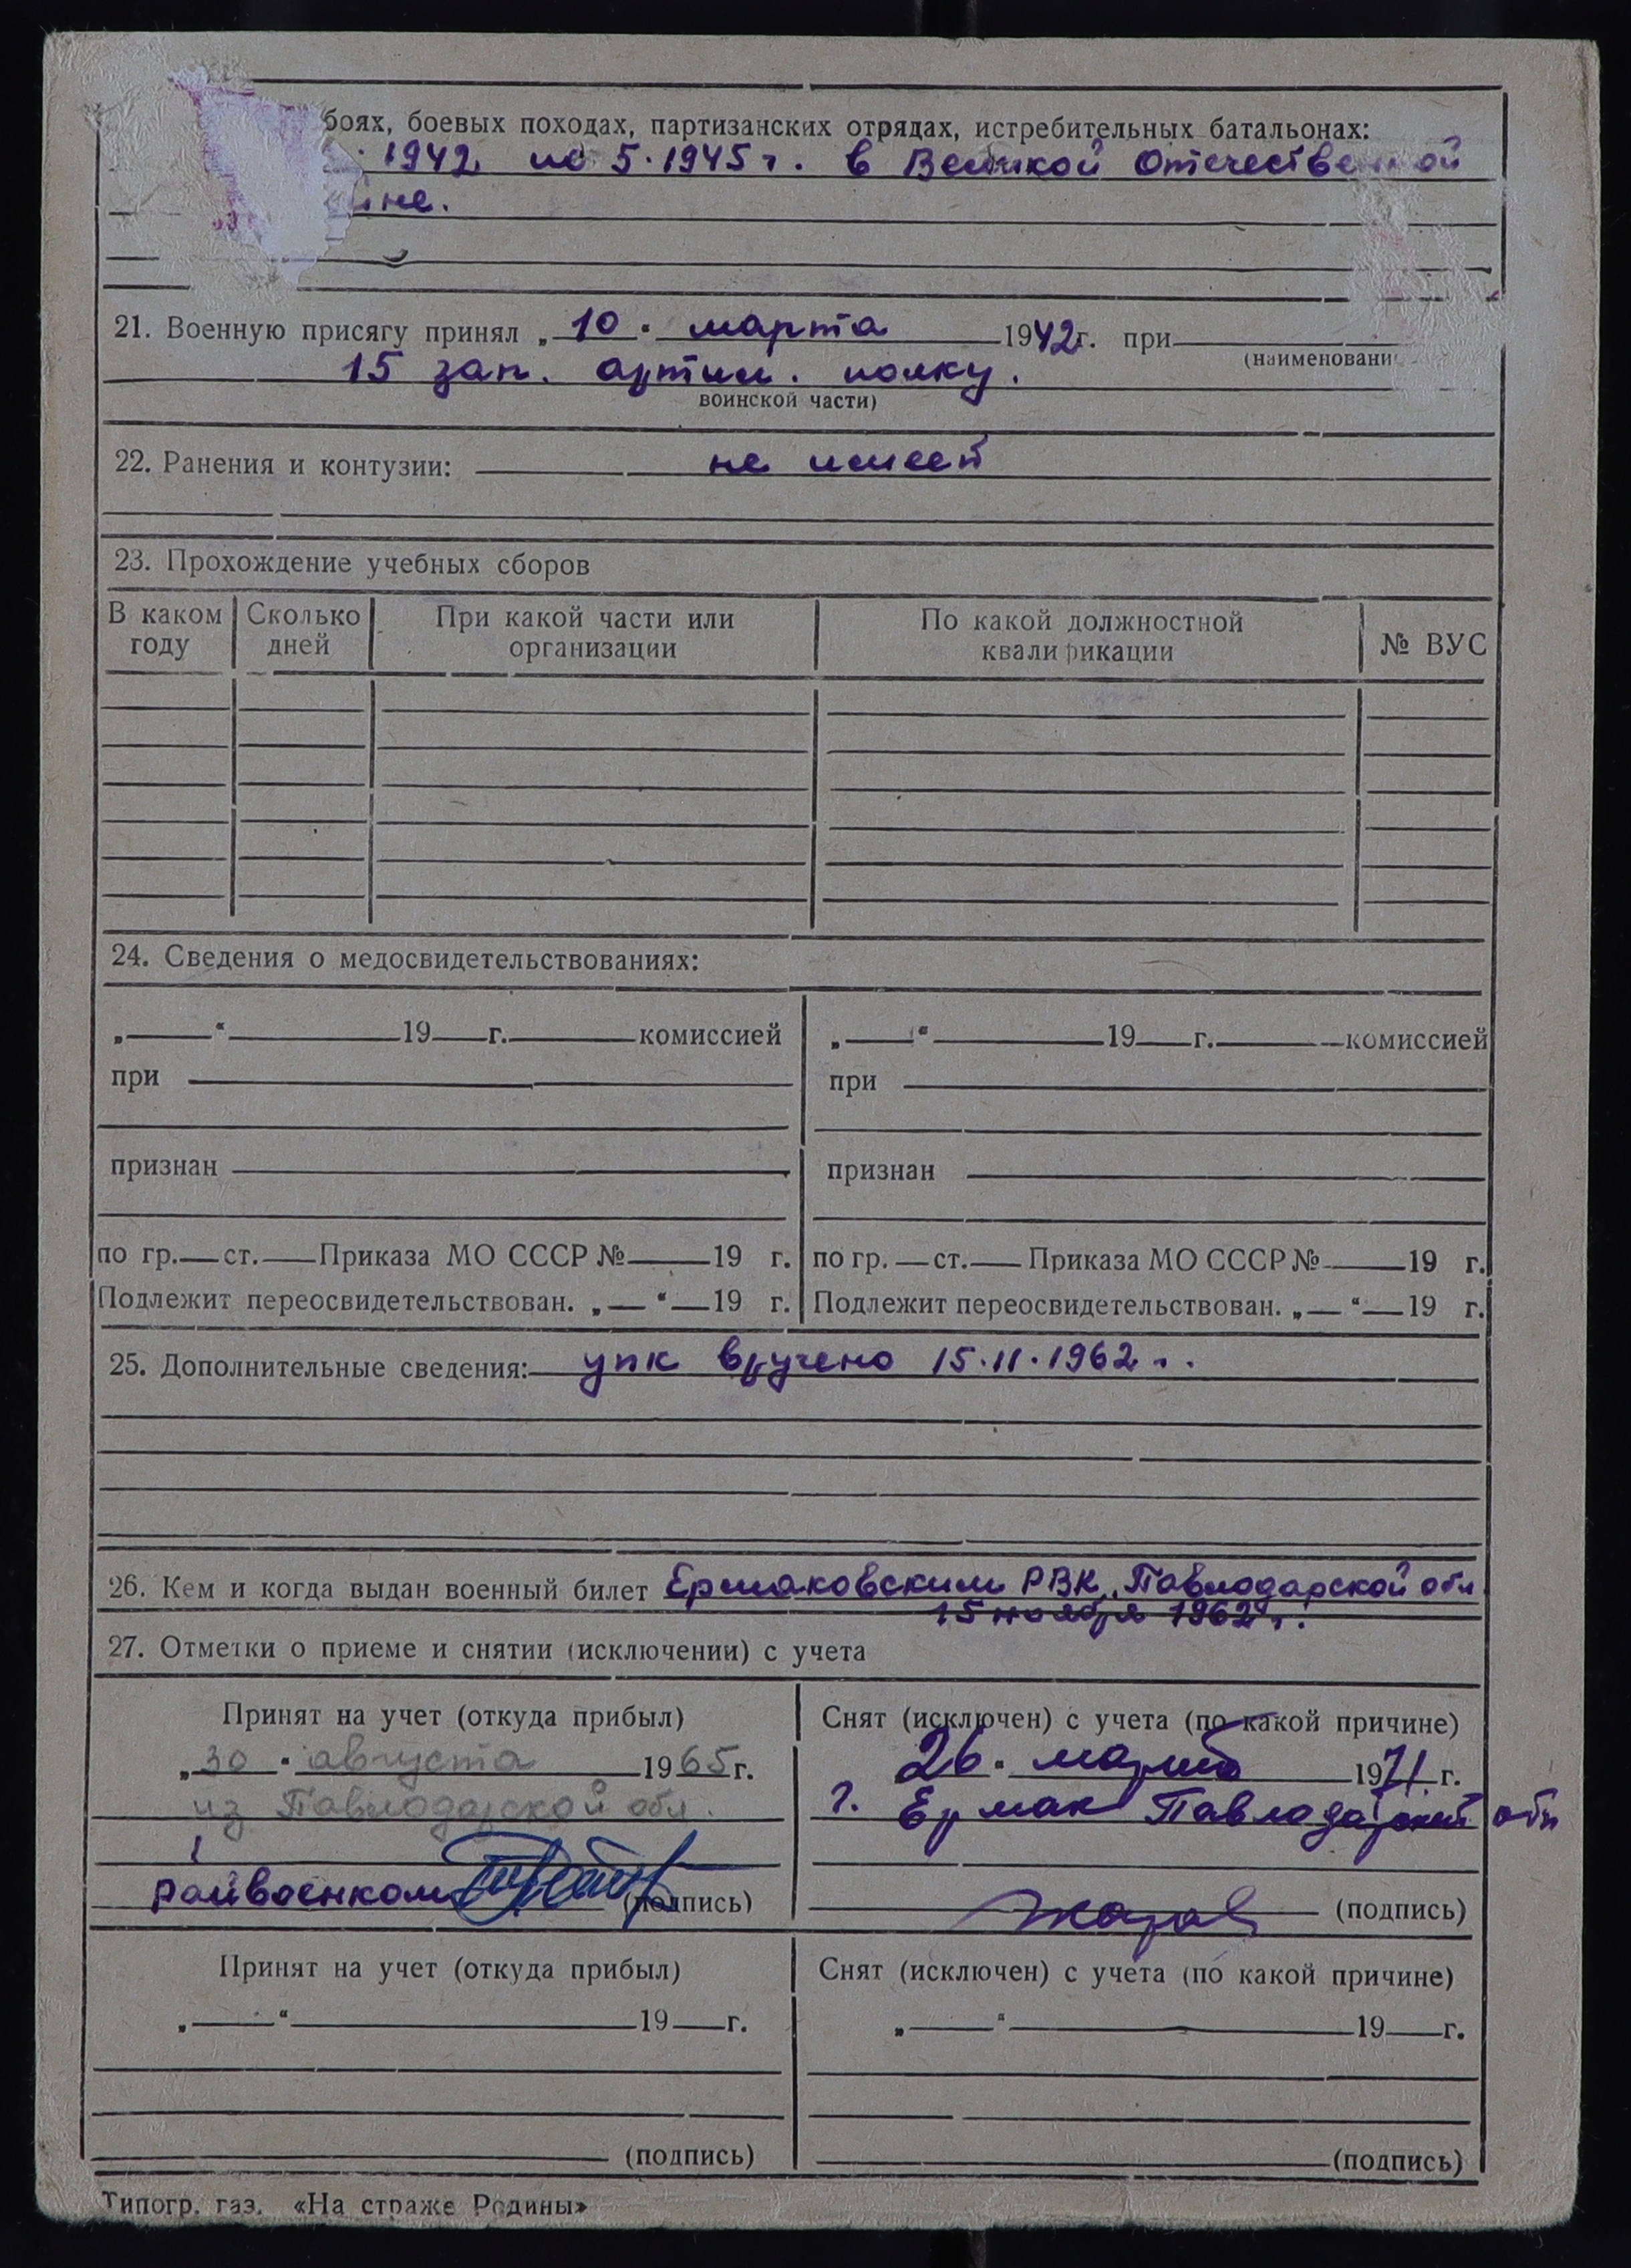 боях, боевых походах, партизанских отрядах, истребительных батальонах:
1942 по 5.1945 г. в Великой Отечественной
ине.
21. Военную присягу принял „ 10 " марта 1942 г. при
(наименовани
15 зап. артил. полку.
воинской части)
22. Ранения и контузии: не имеет
23. Прохождение учебных сборов
В каком году Сколько дней При какой части или организации По какой должностной квалификации № ВУС
24. Сведения о медосвидетельствованиях:
„ “ 19 г. комиссией „ “ 19 г. комиссией
при при
признан признан
по гр. ст. Приказа МО СССР № 19 г. по гр. ст. Приказа МО СССР № 19 г.
Подлежит переосвидетельствован. „ “ 19 г. Подлежит переосвидетельствован. „ “ 19 г.
25. Дополнительные сведения: упк вручено 15.11.1962 г.
26. Кем и когда выдан военный билет Ермаковским РВК, Павлодарской обл
15 ноября 1962 г.
27. Отметки о приеме и снятии (исключении) с учета
Принят на учет (откуда прибыл) Снят (исключен) с учета (по какой причине)
„ 30 " августа 1965 г. 26 " марта 1971 г.
из Павлодарской обл. г. Ермак Павлодарской обл
райвоенком (подпись) (подпись)
Принят на учет (откуда прибыл) Снят (исключен) с учета (по какой причине)
„ “ 19 г. „ “ 19 г.
(подпись) (подпись)
Типогр. газ. «На страже Родины»